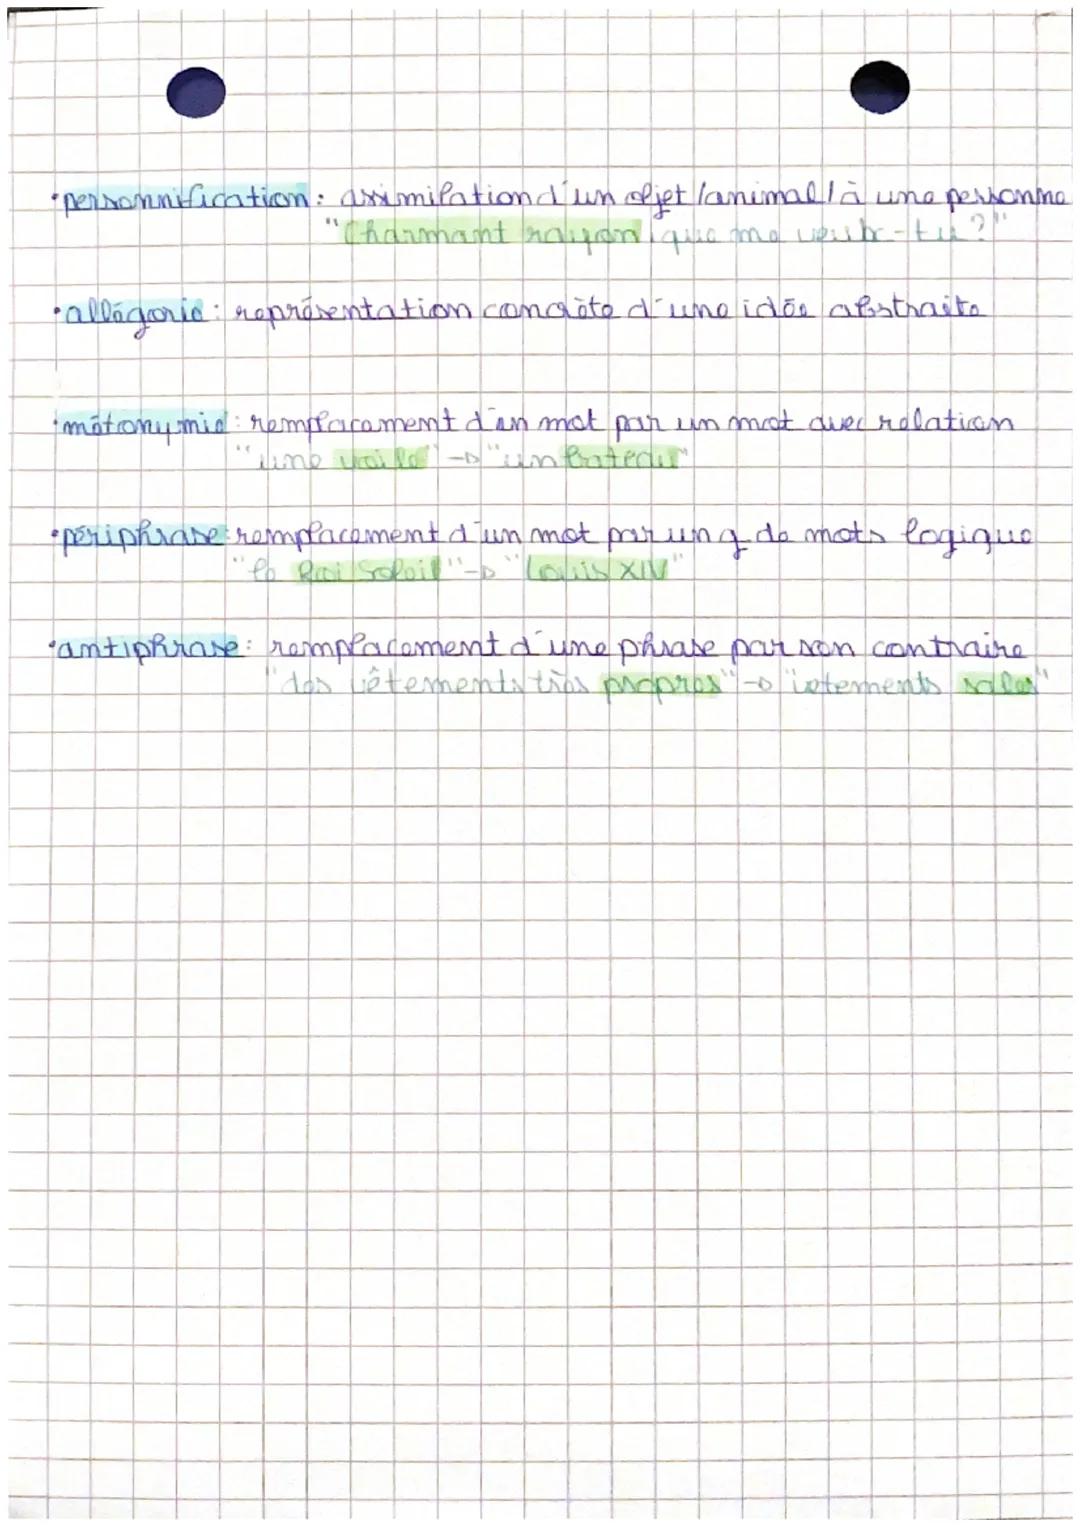 •personnification : assimilation d'un objet /animal/ à une personne
"Charmant rayon, que me veux-tu ?"
•allégorie : représentation concrète d'une idée abstraite
•métonymie : remplacement d'un mot par un mot avec relation
"une voile" → "un bateau"
•périphrase : remplacement d'un mot par un g de mots logique
"le Roi Soleil" → "Louis XIV"
•antiphrase : remplacement d'une phrase par son contraire
"des vêtements très propres" → "vetements sales"